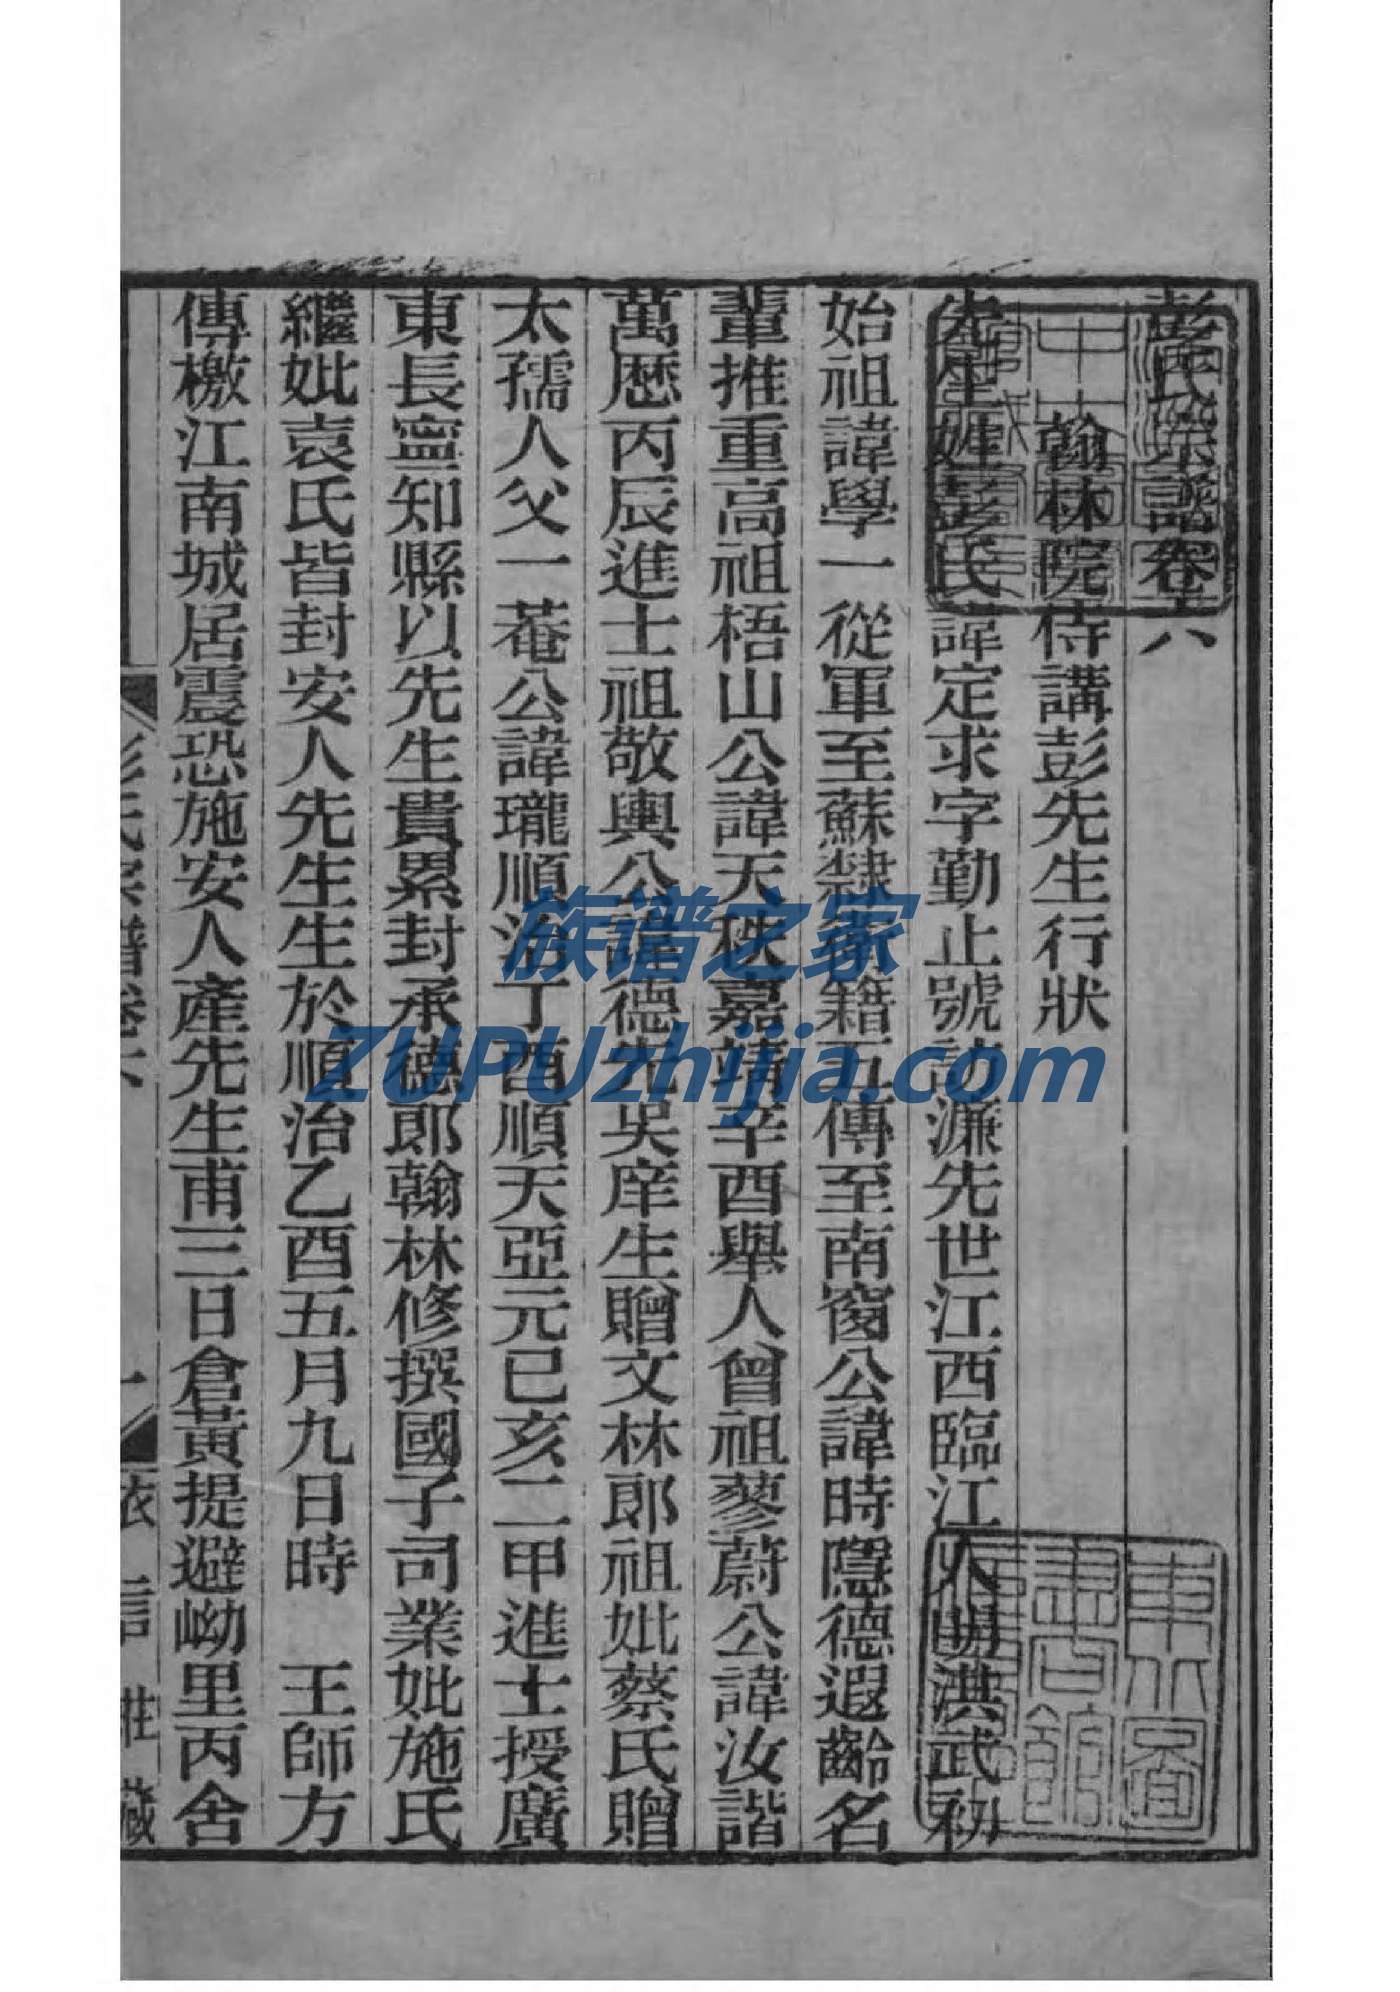 彭氏宗譜卷六
翰林院侍講彭先生行狀
先生姓彭氏諱定求字勤止號訪濂先世江西臨江人明洪武初
始祖諱學一從軍至蘇隸衛籍五傳至南窗公諱時隱德遐齡名
輩推重高祖梧山公諱天秩嘉靖辛酉舉人曾祖蓼蔚公諱汝諧
萬歷丙辰進士祖敬輿公諱德先吳庠生贈文林郎祖妣蔡氏贈
太孺人父一菴公諱瓏順治丁酉順天亞元已亥二甲進士授廣
東長寧知縣以先生貴累封承德郎翰林修撰國子司業妣施氏
繼妣袁氏皆封安人先生生於順治乙酉五月九日時 王師方
傳檄江南城居震恐施安人產先生甫三日倉黃提避岰里丙舍
彭氏宗譜卷六
一
衣言莊藏
族谱之家
ZUPUzhijia.com